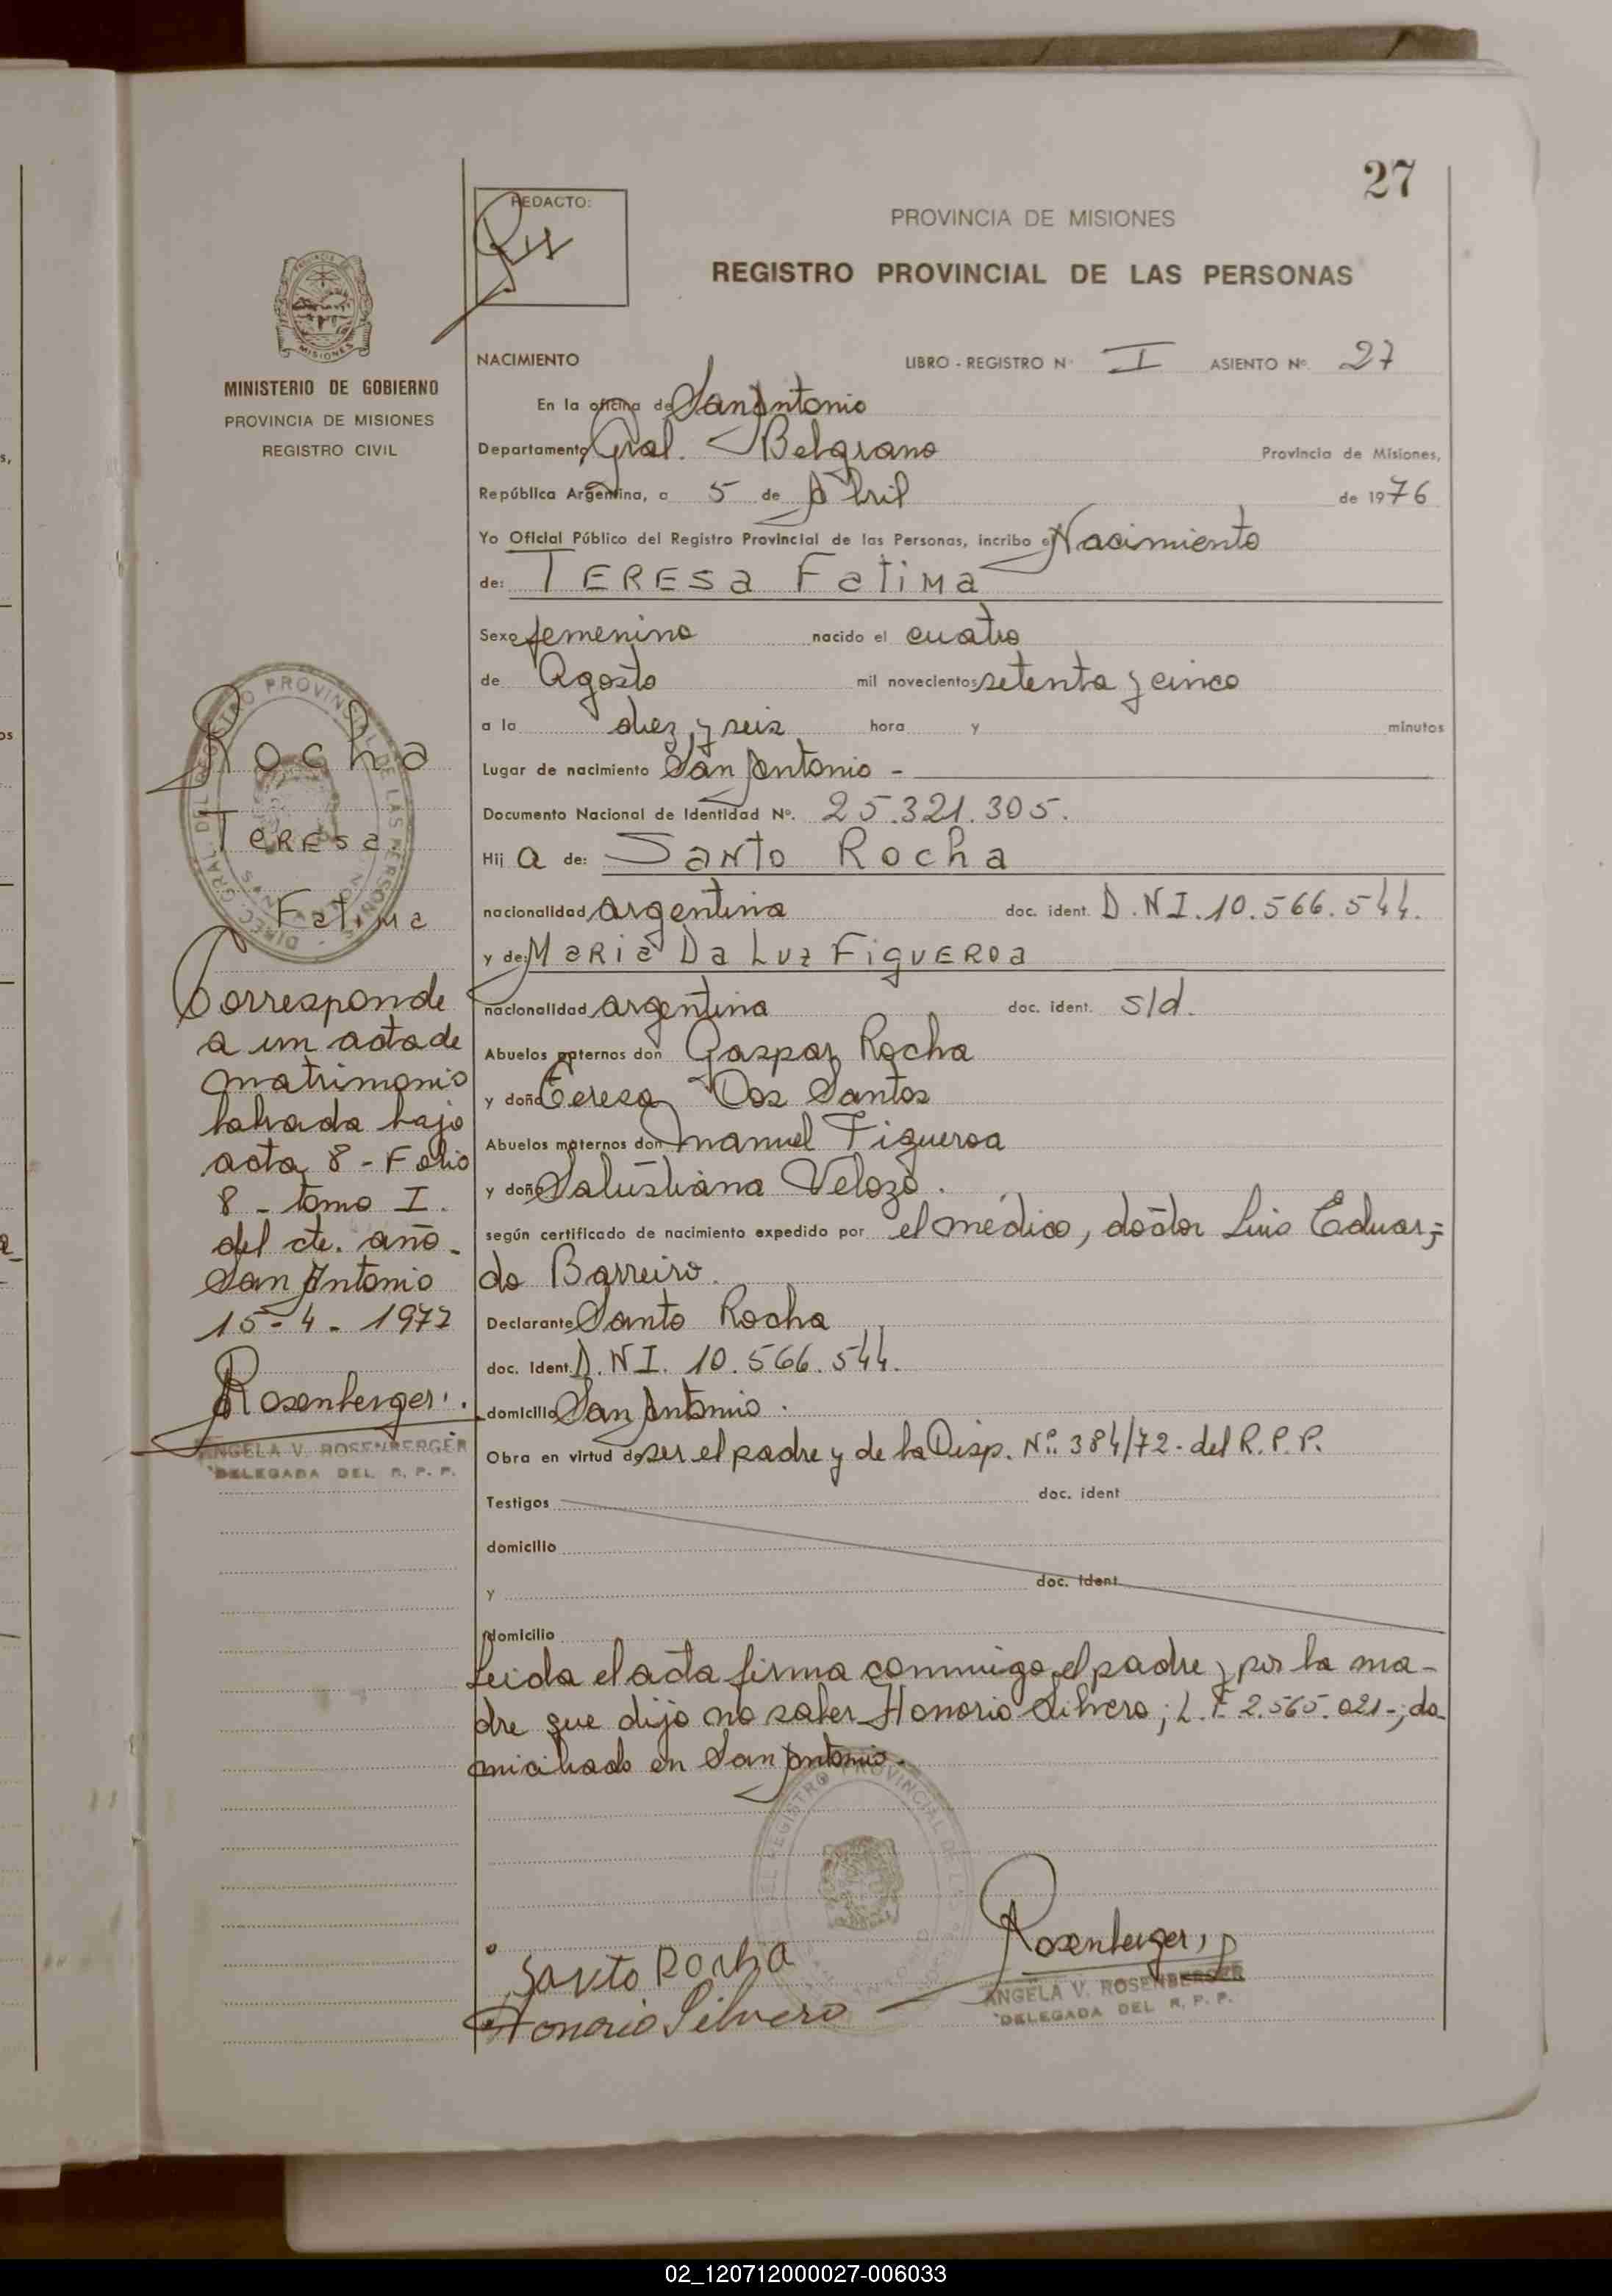 27
REDACTO:
PROVINCIA DE MISIONES
REGISTRO PROVINCIAL DE LAS PERSONAS
MISIONES
MINISTERIO DE GOBIERNO
PROVINCIA DE MISIONES
REGISTRO CIVIL
NACIMIENTO LIBRO - REGISTRO Nº I ASIENTO Nº. 27
En la oficina de San Antonio
Departamento Gral. Belgrano Provincia de Misiones,
República Argentina, a 5 de Abril de 1976
Yo Oficial Público del Registro Provincial de las Personas, incribo el Nacimiento
de: TERESA FATIMA
Sexo femenino nacido el cuatro
de Agosto mil novecientos setenta y cinco
a la diez y seis hora y minutos
Lugar de nacimiento San Antonio -
Documento Nacional de Identidad Nº. 25.321.305.
Hij a de: SANTO ROCHA
nacionalidad argentina doc. ident. D.N.I. 10.566.544.
y de: MARIA DA LUZ FIGUEROA
nacionalidad argentina doc. ident. s/d.
Abuelos paternos don Gaspar Rocha
y doña Teresa Dos Santos
Abuelos maternos don Manuel Figueroa
y doña Salustiana Velozo.
según certificado de nacimiento expedido por el médico, doctor Luis Eduar-
do Barreiro.
Declarante Santo Rocha
doc. Ident. D.N.I. 10.566.544.
domicilio San Antonio.
Obra en virtud de ser el padre y de la Disp. Nº. 384/72. del R.P.P.
Testigos doc. ident
domicilio
y doc. ident
domicilio
Leida el acta firma conmigo el padre y por la ma-
dre que dijo no saber Honorio Silvero; L.E 2.565.021-; do-
miciliado en San Antonio.
Rocha
Teresa
Fatima
Corresponde
a un acta de
matrimonio
labrada bajo
acta 8 - Folio
8 - tomo I.
del cte. año.
San Antonio
15-4-1977
Rosenberger
ANGELA V. ROSENBERGER
DELEGADA DEL R. P. P.
Santo Rocha
Honorio Silvero
Rosenberger
ANGELA V. ROSENBERGER
DELEGADA DEL R. P. P.
02_120712000027-006033